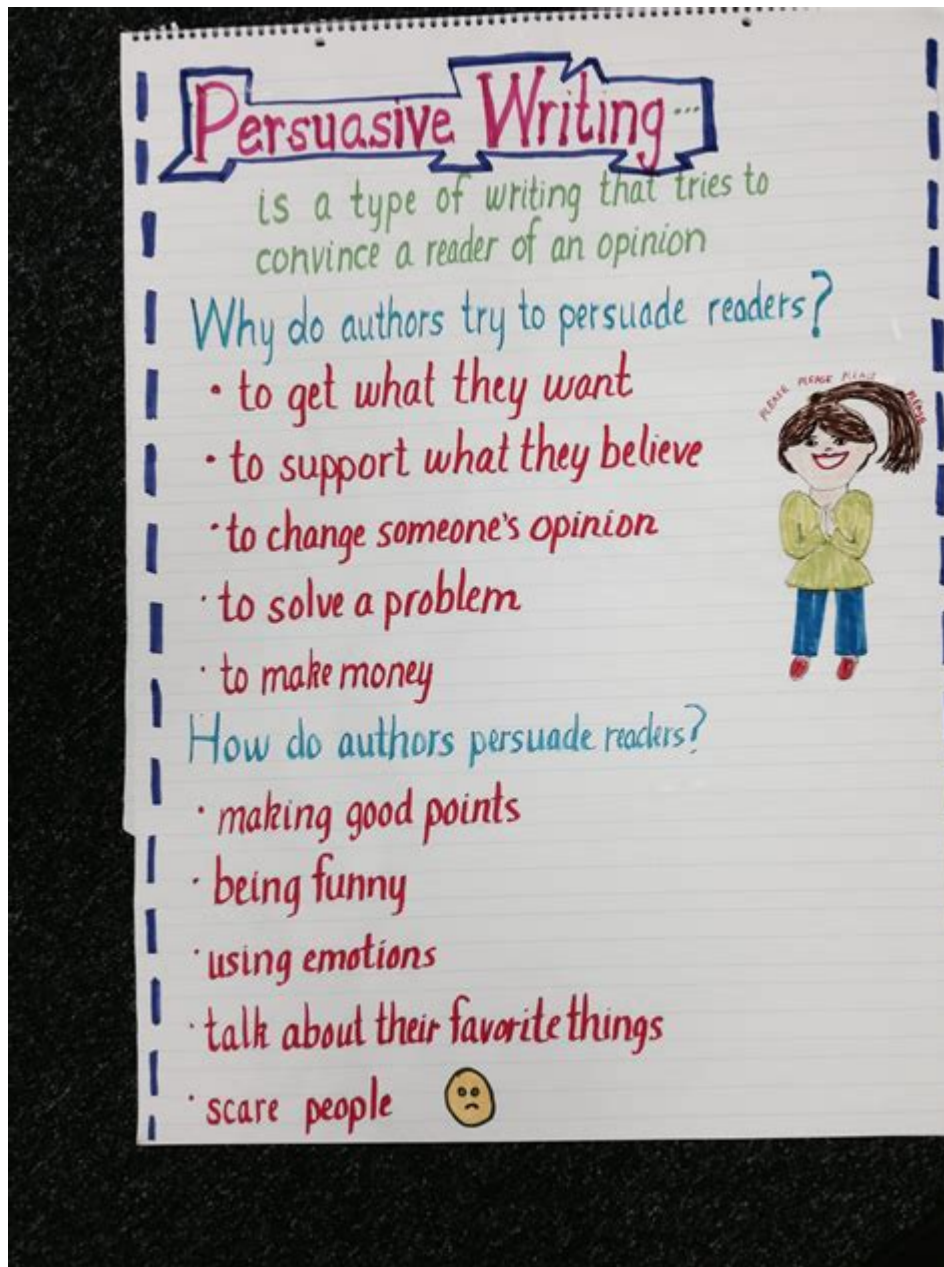 Persuasive Writing...
is a type of writing that tries to
convince a reader of an opinion
Why do authors try to persuade readers?
• to get what they want
• to support what they believe
• to change someone's opinion
• to solve a problem
• to make money
PLEASE PLEASE PLEASE PLEASE
How do authors persuade readers?
• making good points
• being funny
• using emotions
• talk about their favorite things
• scare people